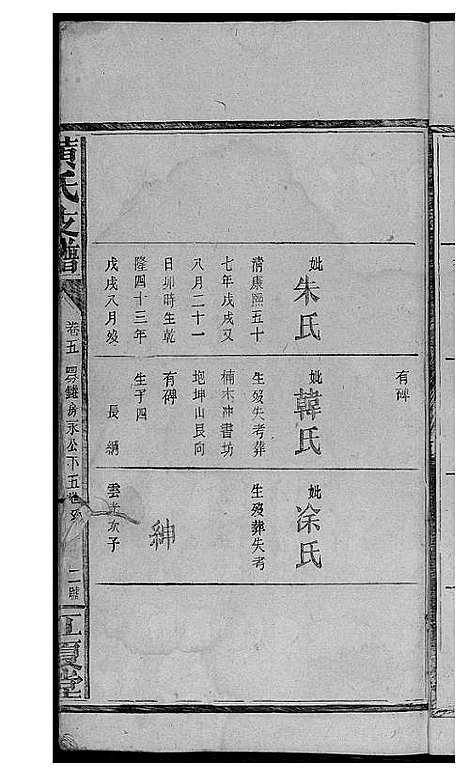 妣朱氏
清康熙五十
七年戊戌又
八月二十一
日卯時生乾
隆四十三年
戊戌八月歿
有碑
妣韓氏
生歿失考葬
楠木冲書坊
地坤山艮向
有碑
生子四
長 綱
妣凃氏
生歿葬失考
紳
雲 次子
黃氏支譜
卷五
房永公下五
二
江夏堂